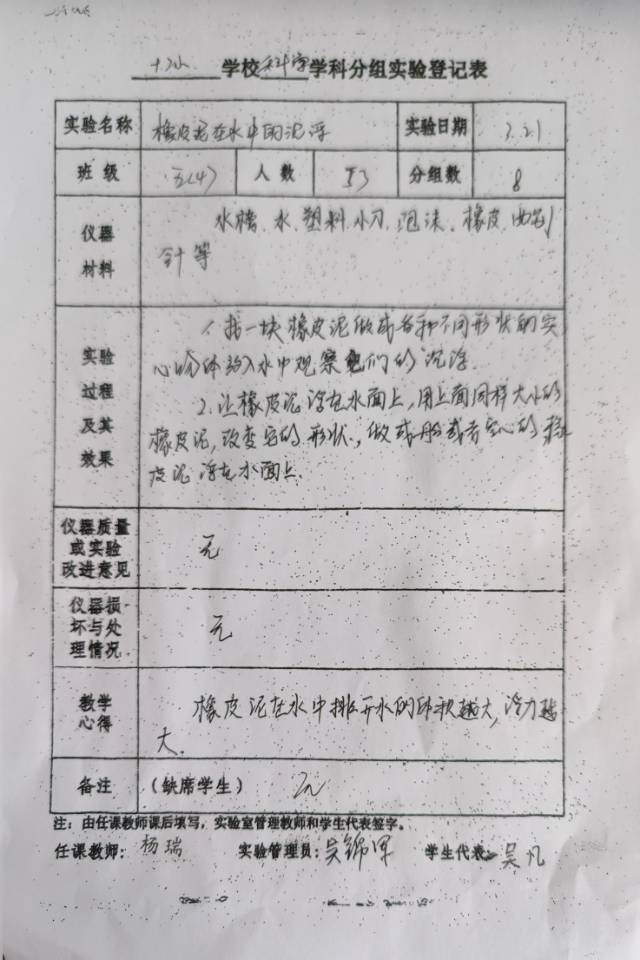 学校科学学科分组实验登记表
实验名称 橡皮泥在水中的沉浮 实验日期 3.21
班 级 五(4) 人 数 53 分组数 8
仪器材料 水槽、水、塑料小刀、泡沫、橡皮、回形针等
实验过程及其效果
1. 找一块橡皮泥做成各种不同形状的实
心物体放入水中观察它们的沉浮.
2. 让橡皮泥浮在水面上,用上面同样大小的
橡皮泥,改变它的形状,做成船或者空心的橡
皮泥浮在水面上.
仪器质量或实验改进意见 无
仪器损坏与处理情况 无
教学心得 橡皮泥在水中排开水的体积越大,浮力越
大.
备注 (缺席学生) 无
注:由任课教师课后填写,实验室管理教师和学生代表签字。
任课教师: 杨瑞 实验管理员: 吴锦军 学生代表: 吴凡